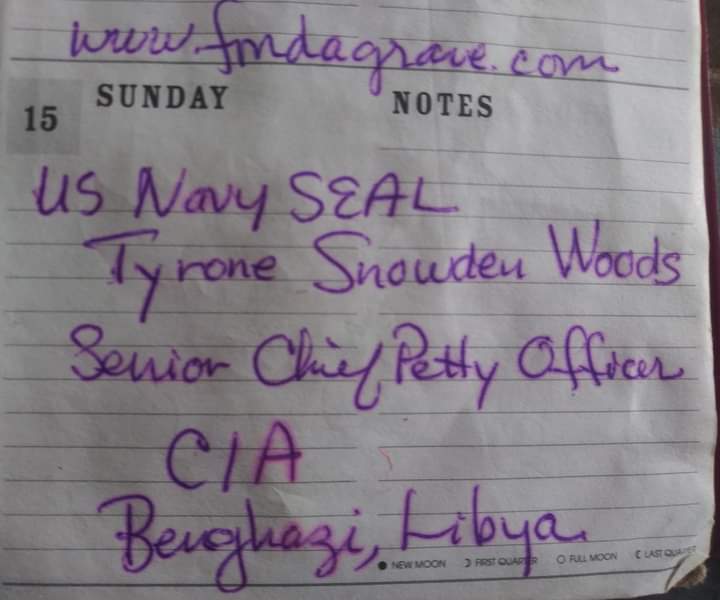 www.findagrave.com
15 SUNDAY NOTES
US Navy SEAL
Tyrone Snowden Woods
Senior Chief Petty Officer
CIA
Benghazi, Libya
NEW MOON FIRST QUARTER FULL MOON LAST QUARTER